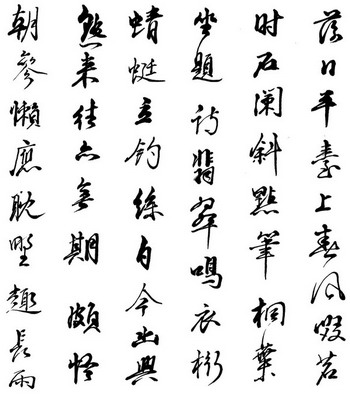 落日平臺上春風啜茗
时石闌斜點筆桐葉
坐題詩翡翠鳴衣桁
蜻蜓立釣絲自今幽興
熟來往亦無期頗怪
朝參懶應耽野趣長雨